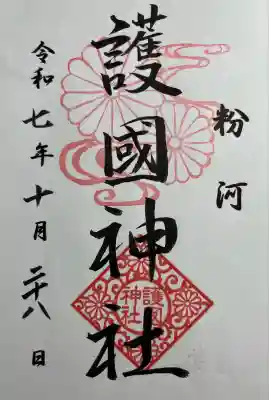 粉河
護國神社
護国
神社
令和七年十月二十八日